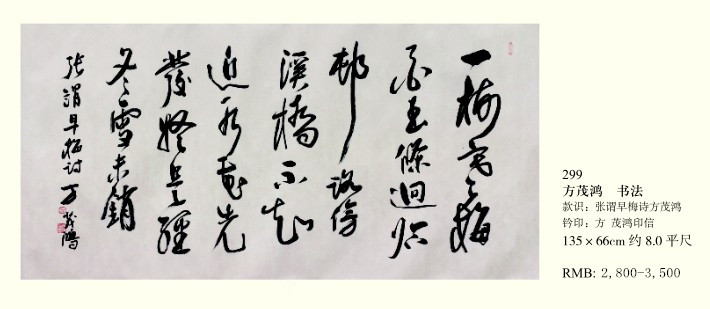 一樹寒梅
白玉條迥临
邨路傍
溪橋不知
近水花先
發疑是經
冬雪未銷
張謂早梅詩方茂鴻
299
方茂鸿 书法
款识：张谓早梅诗方茂鸿
钤印：方 茂鸿印信
135×66cm 约 8.0 平尺
RMB: 2,800-3,500